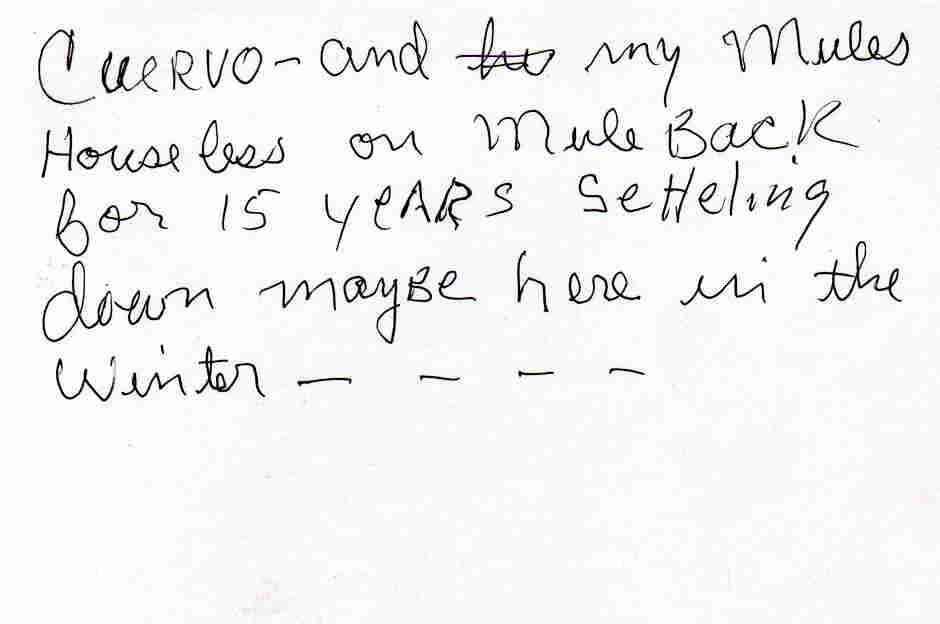 CUERVO - and his my Mules
Houseless on Mule Back
for 15 YEARS Setteling
down maybe here in the
Winter — — — —